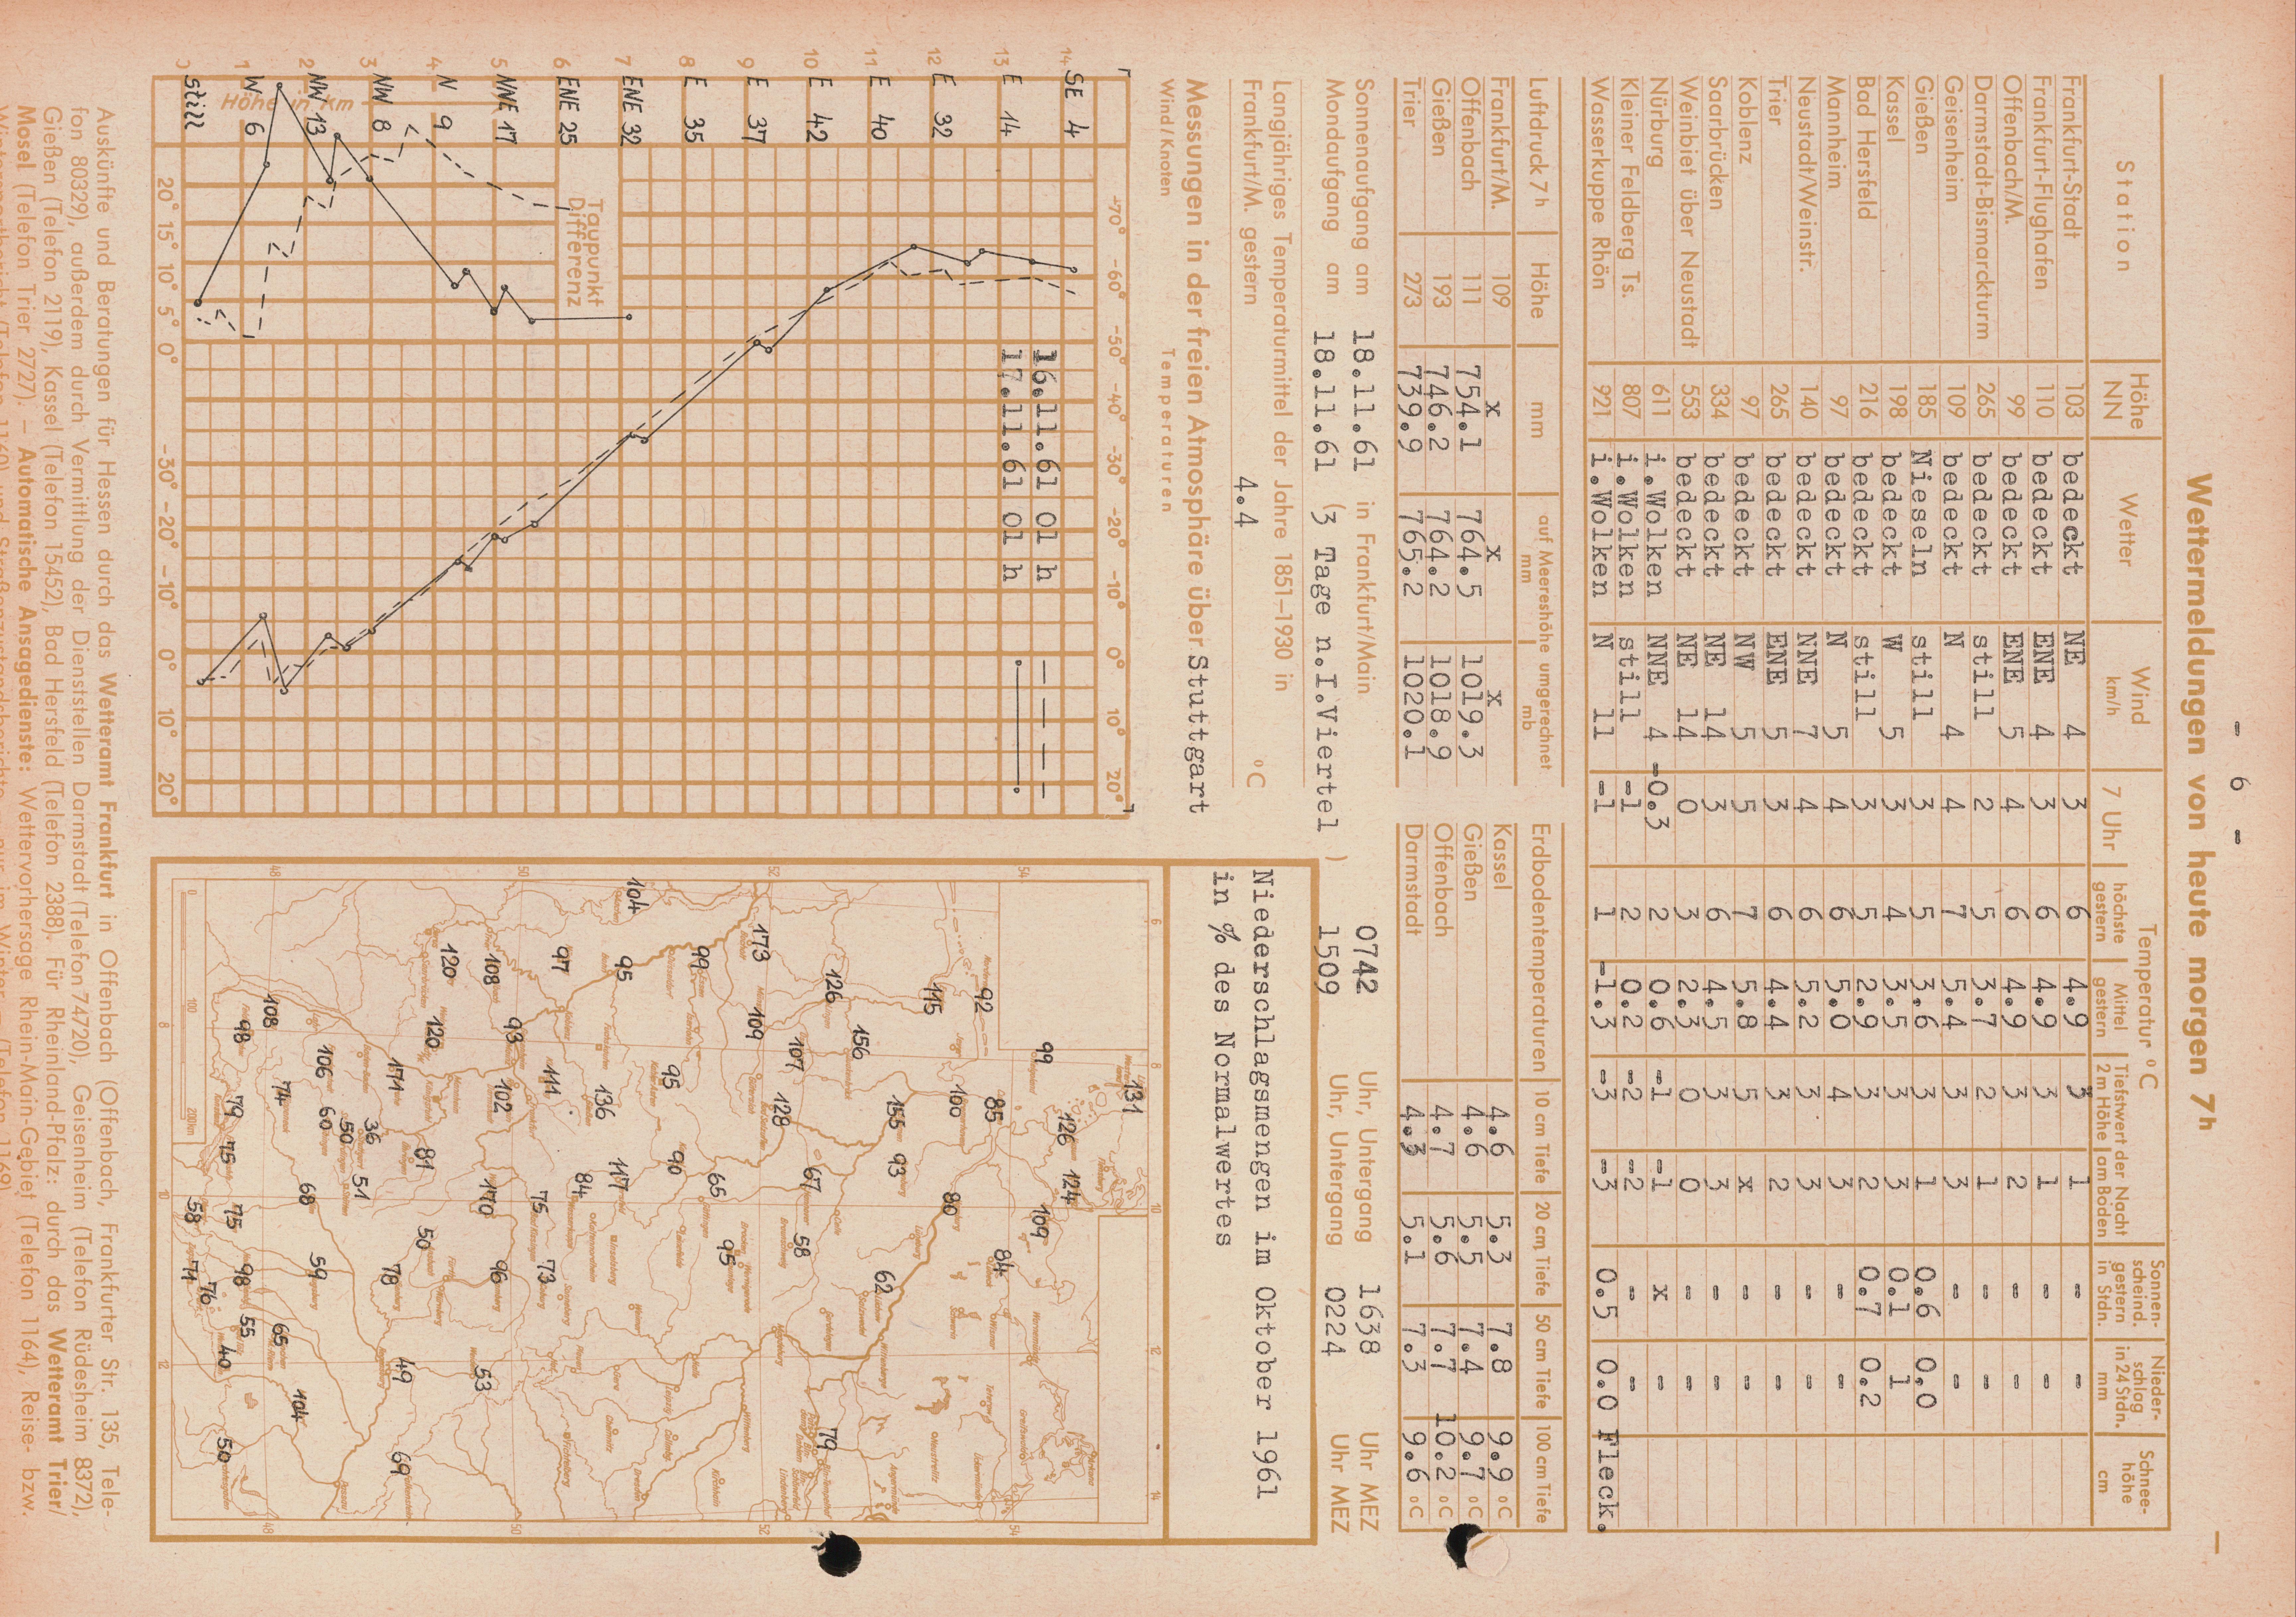 - 6 -
Wettermeldungen von heute morgen 7h
Station Höhe NN Wetter Wind km/h Temperatur °C Sonnenscheind. gestern in Stdn. Niederschlag in 24 Stdn. mm Schneehöhe cm
7 Uhr höchste gestern Mittel gestern Tiefstwert der Nacht 2m Höhe am Boden
Frankfurt-Stadt 103 bedeckt NE 4 3 6 4.9 3 1 - -
Frankfurt-Flughafen 110 bedeckt ENE 4 3 6 4.9 3 1 - -
Offenbach/M. 99 bedeckt ENE 5 4 6 4.9 3 2 - -
Darmstadt-Bismarckturm 265 bedeckt still 2 5 3.7 2 1 - -
Geisenheim 109 bedeckt N 4 4 7 5.4 3 3 - -
Gießen 185 Nieseln still 3 5 3.6 3 1 0.6 0.0
Kassel 198 bedeckt W 5 3 4 3.5 3 3 0.1 1
Bad Hersfeld 216 bedeckt still 3 5 2.9 3 2 0.7 0.2
Mannheim 97 bedeckt N 5 4 6 5.0 4 3 - -
Neustadt/Weinstr. 140 bedeckt NNE 7 4 6 5.2 3 3 - -
Trier 265 bedeckt ENE 5 3 6 4.4 3 2 - -
Koblenz 97 bedeckt NW 5 5 7 5.8 5 x - -
Saarbrücken 334 bedeckt NE 14 3 6 4.5 3 3 - -
Weinbiet über Neustadt 553 bedeckt NE 14 0 3 2.3 0 0 - -
Nürburg 611 i.Wolken NNE 4 -0.3 2 0.6 -1 -1 x -
Kleiner Feldberg Ts. 807 i.Wolken still -1 2 0.2 -2 -2 - -
Wasserkuppe Rhön 921 i.Wolken N 11 -1 1 -1.3 -3 -3 0.5 0.0 Fleck.
Luftdruck 7 h Höhe mm auf Meereshöhe umgerechnet mm mb
Frankfurt/M. 109 x x x
Offenbach 111 754.1 764.5 1019.3
Gießen 193 746.2 764.2 1018.9
Trier 273 739.9 765.2 1020.1
Erdbodentemperaturen 10 cm Tiefe 20 cm Tiefe 50 cm Tiefe 100 cm Tiefe
Kassel 4.6 5.3 7.8 9.9 °C
Gießen 4.6 5.5 7.4 9.7 °C
Offenbach 4.7 5.6 7.7 10.2 °C
Darmstadt 4.3 5.1 7.3 9.6 °C
Sonnenaufgang am 18.11.61 in Frankfurt/Main 0742 Uhr, Untergang 1638 Uhr MEZ
Mondaufgang am 18.11.61 (3 Tage n.I.Viertel ) 1509 Uhr, Untergang 0224 Uhr MEZ
Langjähriges Temperaturmittel der Jahre 1851–1930 in
Frankfurt/M. gestern 4.4 °C
Messungen in der freien Atmosphäre über Stuttgart
Wind/Knoten Temperaturen
-70° -60° -50° -40° -30° -20° -10° 0° 10° 20°
14 SE 4
13 E 14
12 E 32
11 E 40
10 E 42
9 E 37
8 E 35
7 ENE 32
6 ENE 25
5 NNE 17
4 N 9
3 NW 8
2 NW 13
1 W 6
0 still
Höhe in km
16.11.61 01 h
17.11.61 01 h
Taupunkt
Differenz
20° 15° 10° 5° 0° -30° -20° -10° 0° 10° 20°
Niederschlagsmengen im Oktober 1961
in % des Normalwertes
6 8 10 12 14
131
99 126 124 109
92 100 85 84
115 155 93 80
126 156 62
173 109 107 128 67 58 79
99 95 65 95
104 95 136 117 90
97 111 84
108 93 102 75 73
120 120 170 96 53
171 81 50 78 49 69
106 36 50 51
108 74 60 68 59 65 104
98 79 75 75 98 55 40 50
58 71 76
48 50 52 54
0 100 200km
Auskünfte und Beratungen für Hessen durch das Wetteramt Frankfurt in Offenbach (Offenbach, Frankfurter Str. 135, Tele-
fon 80329), außerdem durch Vermittlung der Dienststellen Darmstadt (Telefon 74720), Geisenheim (Telefon Rüdesheim 8372),
Gießen (Telefon 2119), Kassel (Telefon 15452), Bad Hersfeld (Telefon 2388). Für Rheinland-Pfalz: durch das Wetteramt Trier/
Mosel (Telefon Trier 2727). — Automatische Ansagedienste: Wettervorhersage Rhein-Main-Gebiet (Telefon 1164), Reise- bzw.